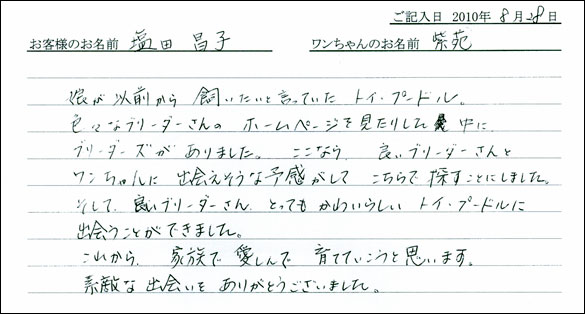 ご記入日 2010年 8月28日
お客様のお名前 塩田 昌子 ワンちゃんのお名前 紫苑
娘が以前から 飼いたいと言っていた トイ・プードル。
色々なブリーダーさんの ホームページを見たりした 中に
ブリーダーズがありました。 ここなら、良いブリーダーさんと
ワンちゃんに 出会えそうな予感がして こちらで 探すことにしました。
そして、良いブリーダーさん、とっても かわいらしい トイ・プードルに
出会うことができました。
これから、 家族で 愛しんで 育てていこうと思います。
素敵な 出会いを ありがとうございました。